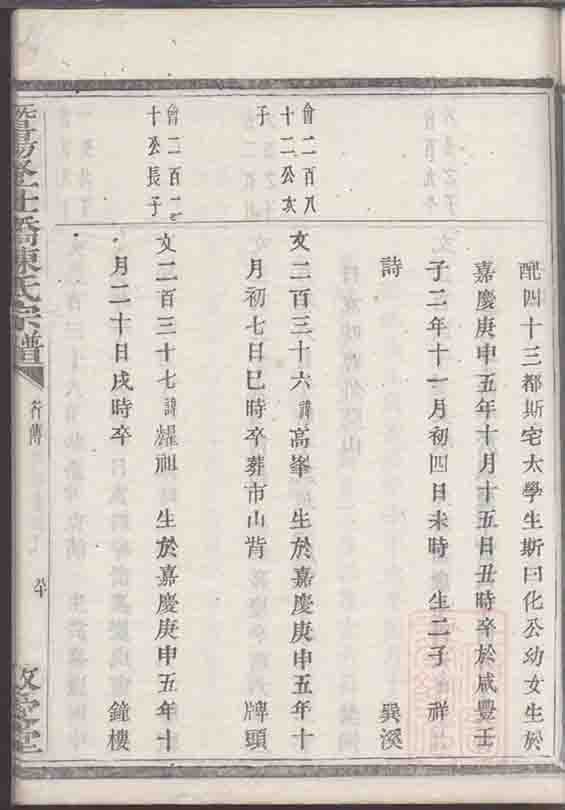 配四十三都斯宅太學生斯曰化公幼女生於
嘉慶庚申五年十月十五日丑時卒於咸豐壬
子二年十一月初四日未時 生二子 祥
詩 巽溪
曾二百八
十二公次
子
文二百三十六 諱 高峯 生於嘉慶庚申五年十
月初七日巳時卒葬市山背 牌頭
曾二百
十公長子
文二百三十七 諱 耀祖 生於嘉慶庚申五年十
月二十日戌時卒 鐘樓
橋陳氏宗譜
行傳
堂